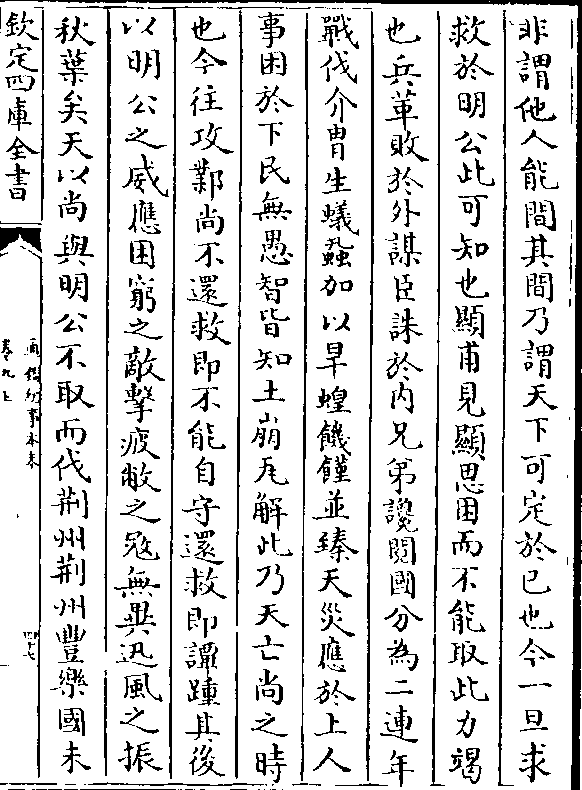 非謂他人能間其間乃謂天下可定於已也今一旦求
救於明公此可知也顯甫見顯思困而不能取此力竭
也兵革敗於外謀臣誅於内兄弟讒鬩國分為二連年
戰伐介胄生蟣蝨加以旱蝗饑饉並臻天災應於上人
事困於下民無愚智皆知土崩瓦解此乃天亡尚之時
也今往攻鄴尚不還救即不能自守還救即譚踵其後
以明公之威應困窮之敵擊疲敝之寇無異迅風之振
秋葉矣天以尚與明公不取而伐荆州荆州豐樂國未
欽定四庫全書
通鑑紀事本末
卷九上
四十七